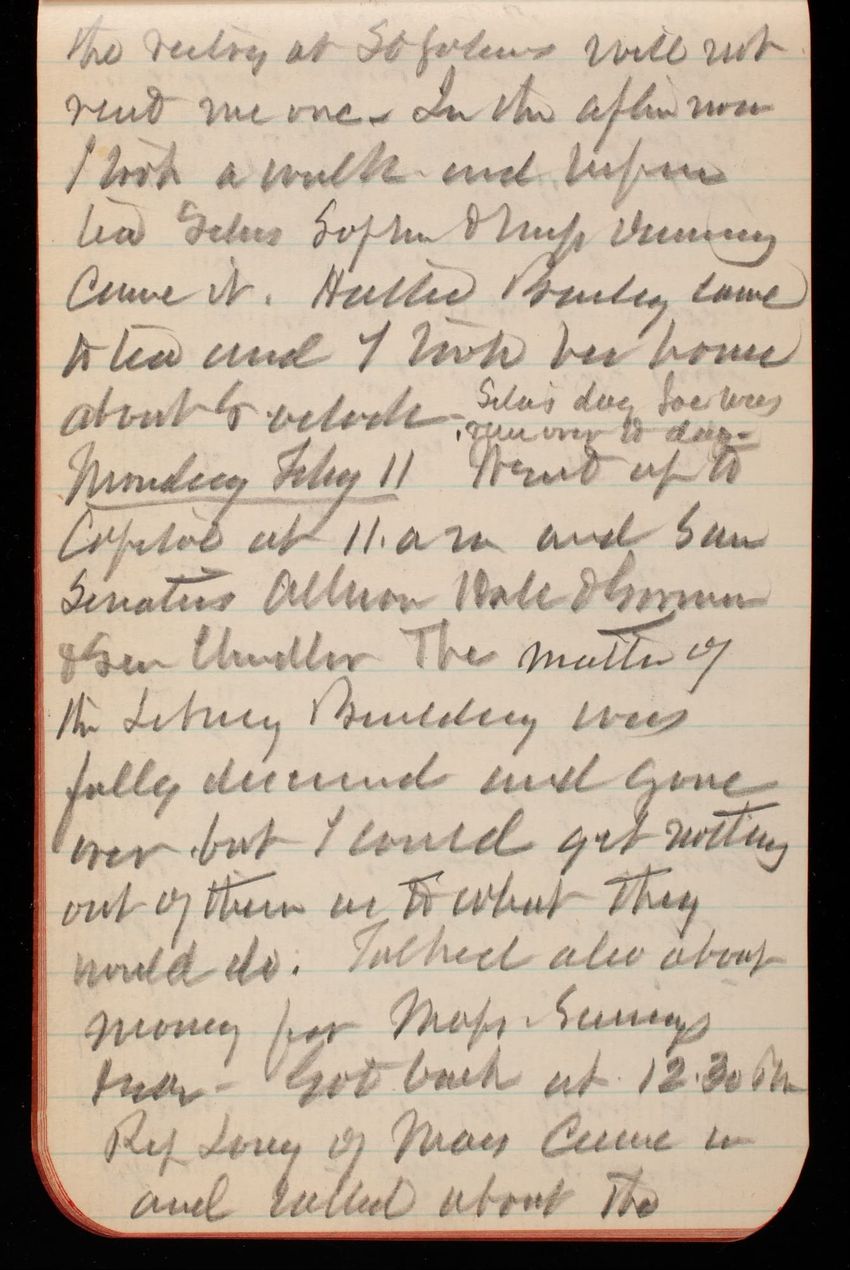 the rectory at St Johns will not
rent me one. In the afternoon
I took a walk and before
tea Silas Sophie & Miss Dunning
came in. Hattie Pinsley came
to tea and I took her home
about o'clock. Sila's dog Joe was
run over to day.
Monday Feby 11 Went up to
Capitol at 11. a m and saw
Senators Allison Hale & Gorman
& Gen Chandler The matter of
the Library Building was
fully discussed and gone
over but I could get nothing
out of them as to what they
would do. Talked also about
money for Mass. Survey
Got back at 12.30 Pm
Rep Long of Mass Came in
and talked about the